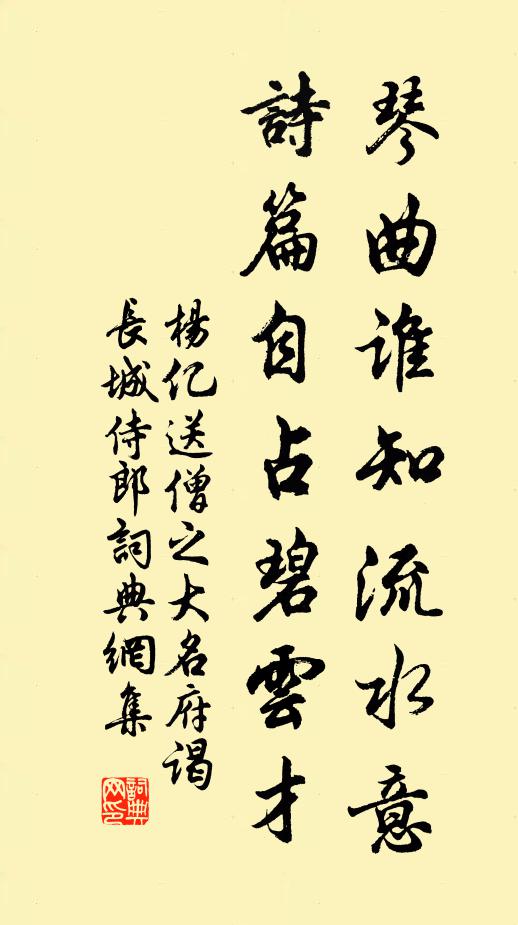 琴曲谁知流水意
詩篇自占碧雲才
楊亿送僧之大名府谒
長城侍郎詞典網集
詞典
网印